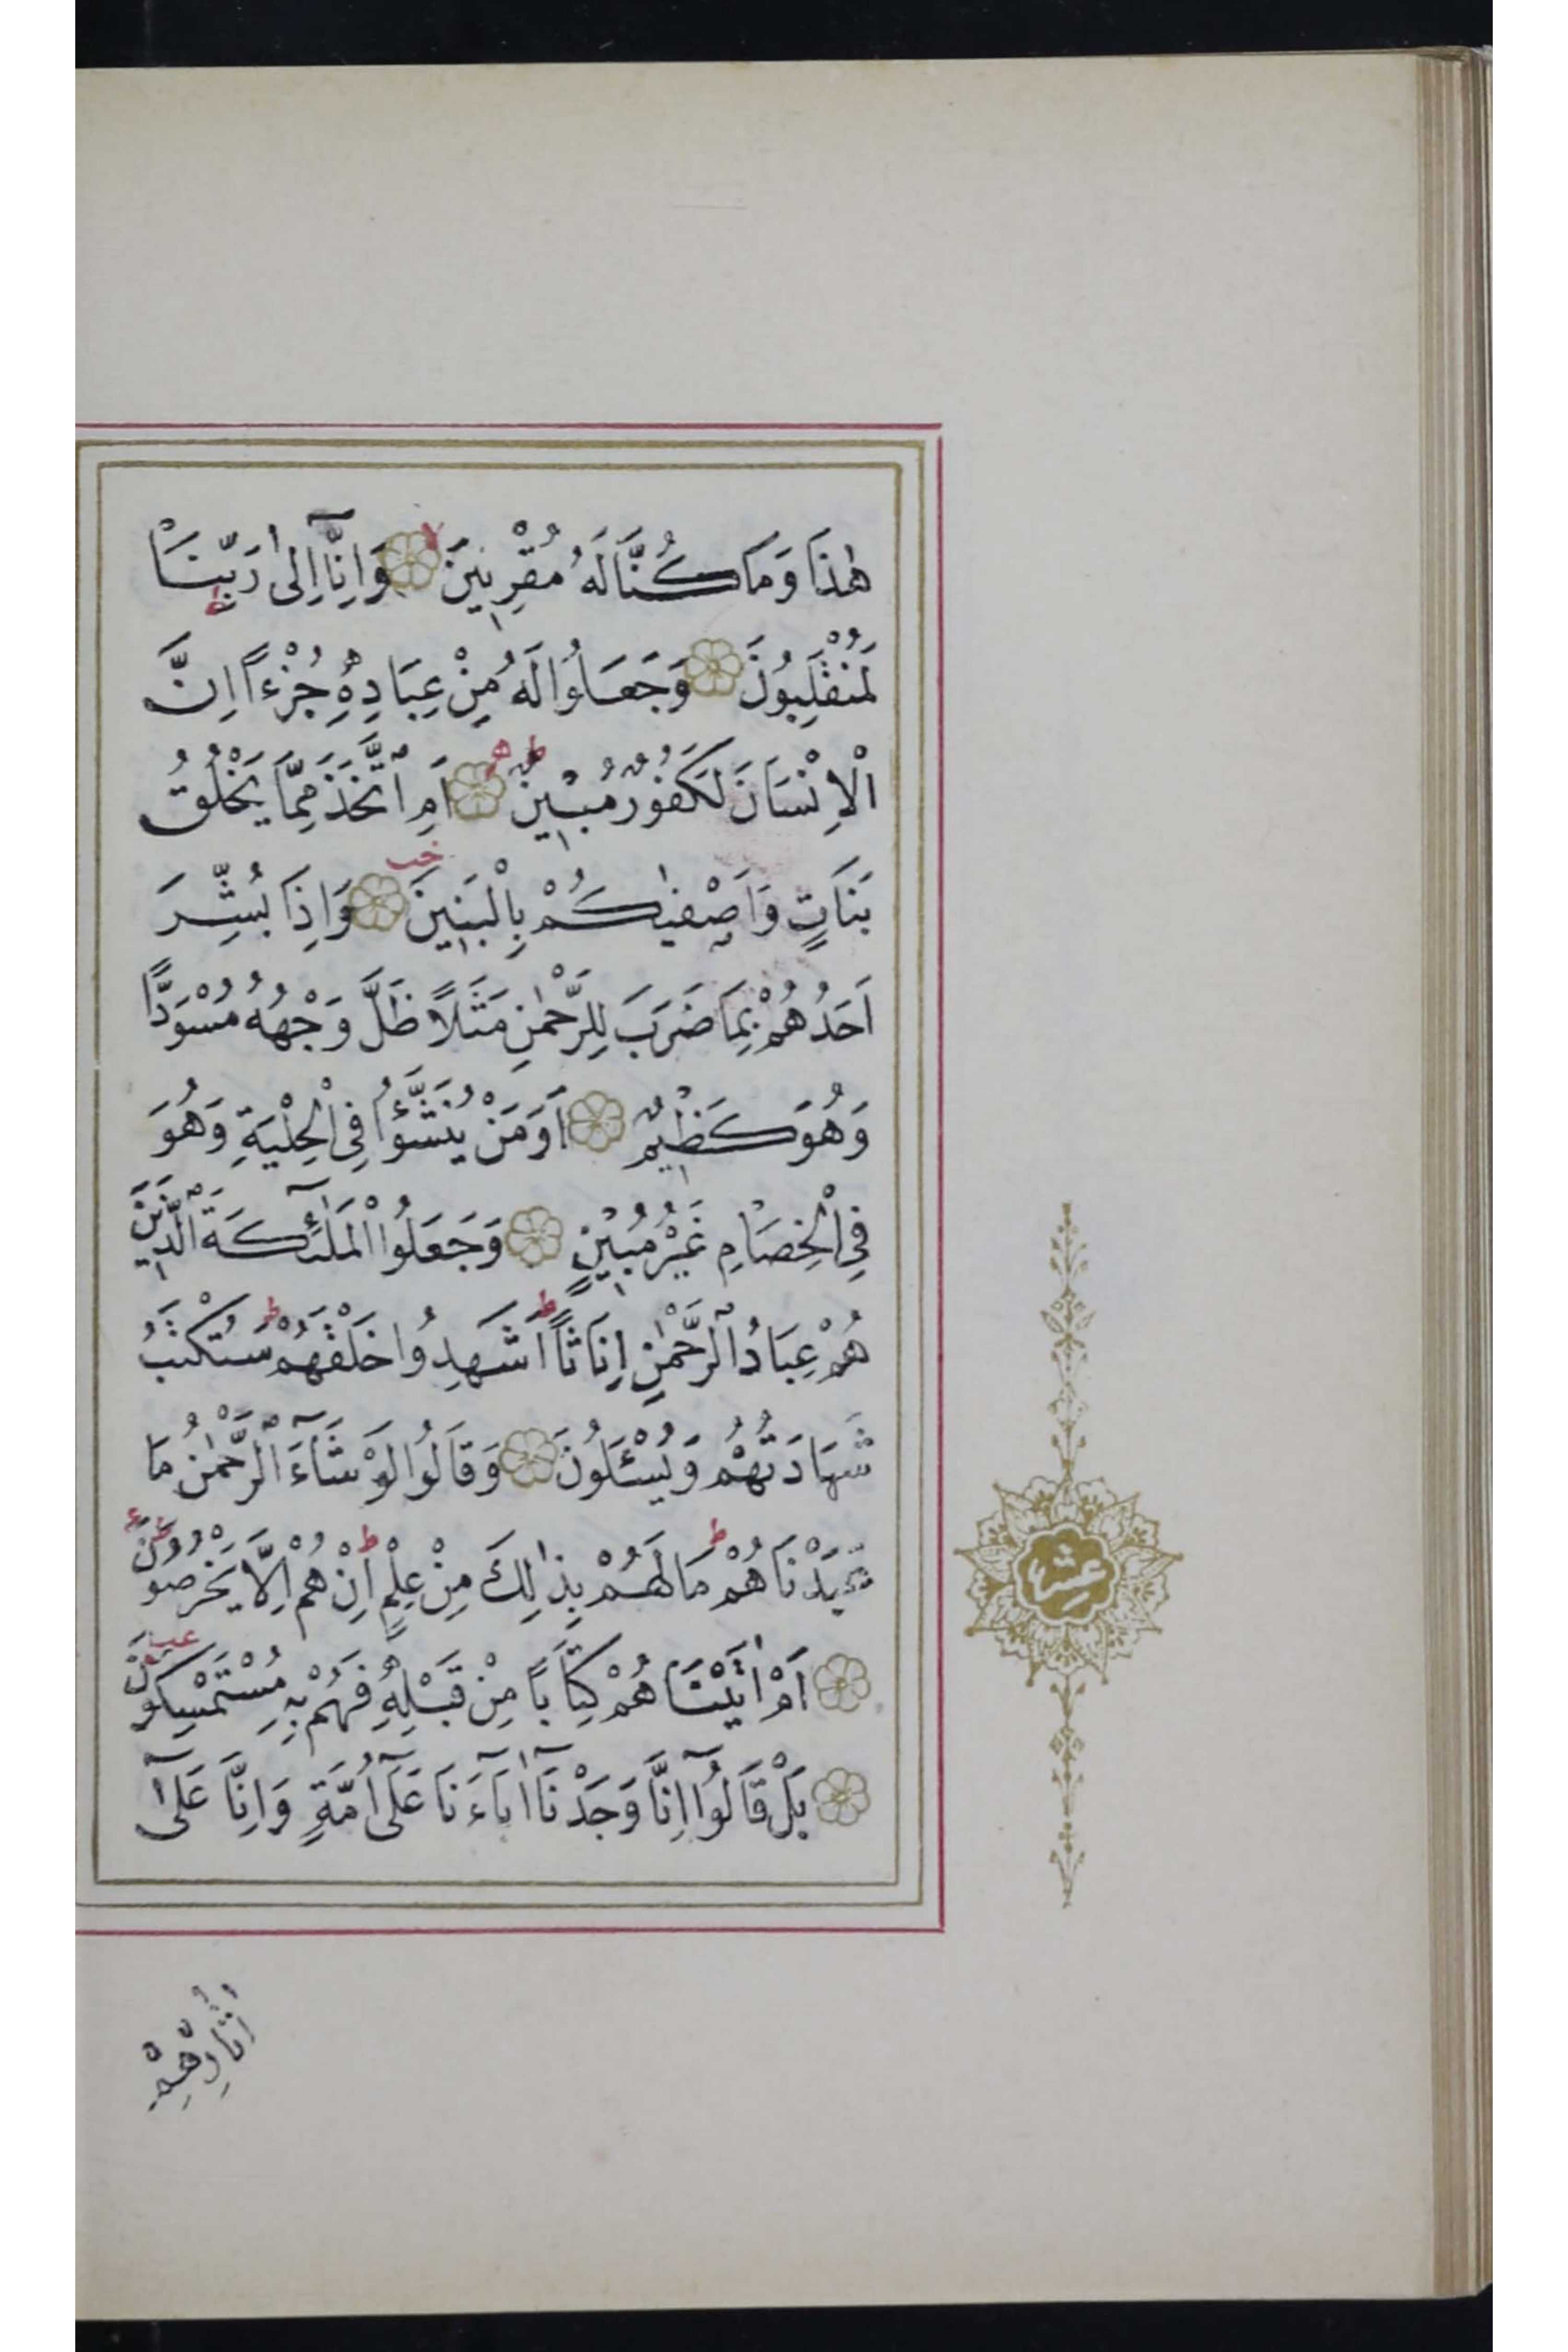 هٰذَا وَمَا كُنَّا لَهُ مُقْرِنِينَ وَاِنَّٓا اِلٰى رَبِّنَا
لَمُنْقَلِبُونَ وَجَعَلُوا لَهُ مِنْ عِبَادِهِ جُزْءًا اِنَّ
الْاِنْسَانَ لَكَفُورٌ مُبِينٌ اَمِ اتَّخَذَ مِمَّا يَخْلُقُ
بَنَاتٍ وَاَصْفٰيكُمْ بِالْبَنِينَ وَاِذَا بُشِّرَ
اَحَدُهُمْ بِمَا ضَرَبَ لِلرَّحْمٰنِ مَثَلًا ظَلَّ وَجْهُهُ مُسْوَدًّا
وَهُوَ كَظِيمٌ اَوَمَنْ يُنَشَّؤُا فِى الْحِلْيَةِ وَهُوَ
فِى الْخِصَامِ غَيْرُ مُبِينٍ وَجَعَلُوا الْمَلٰٓئِكَةَ الَّذِينَ
هُمْ عِبَادُ الرَّحْمٰنِ اِنَاثًا ط اَشَهِدُوا خَلْقَهُمْ ط سَتُكْتَبُ
شَهَادَتُهُمْ وَيُسْئَلُونَ وَقَالُوا لَوْ شَٓاءَ الرَّحْمٰنُ مَا
عَبَدْنَاهُمْ ط مَا لَهُمْ بِذٰلِكَ مِنْ عِلْمٍ ط اِنْ هُمْ اِلَّا يَخْرُصُونَ
اَمْ اٰتَيْنَاهُمْ كِتَابًا مِنْ قَبْلِهِ فَهُمْ بِهِ مُسْتَمْسِكُونَ
بَلْ قَالُٓوا اِنَّا وَجَدْنَٓا اٰبَٓاءَنَا عَلٰٓى اُمَّةٍ وَاِنَّا عَلٰٓى
عشر
اٰثَارِهِمْ